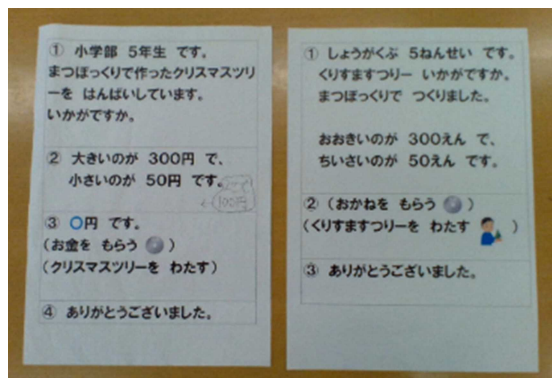 ① 小学部 5年生 です。
まつぼっくりで作ったクリスマスツリ
ーを はんばいしています。
いかがですか。
② 大きいのが 300円 で、
小さいのが 50円 です。
←100円
③ 〇円 です。
(お金を もらう )
(クリスマスツリーを わたす)
④ ありがとうございました。
① しょうがくぶ 5ねんせい です。
くりすますつりー いかがですか。
まつぼっくりで つくりました。
おおきいのが 300えん で、
ちいさいのが 50えん です。
② (おかねを もらう )
(くりすますつりーを わたす )
③ ありがとうございました。